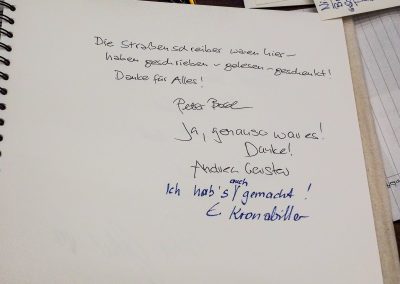 Die Straßenschreiber waren hier –
haben geschrieben – gelesen – geschenkt!
Danke für Alles!
Peter
Ja, genauso war es!
Danke!
Andrea Gerster
Ich hab's auch gemacht!
E Kronabitter